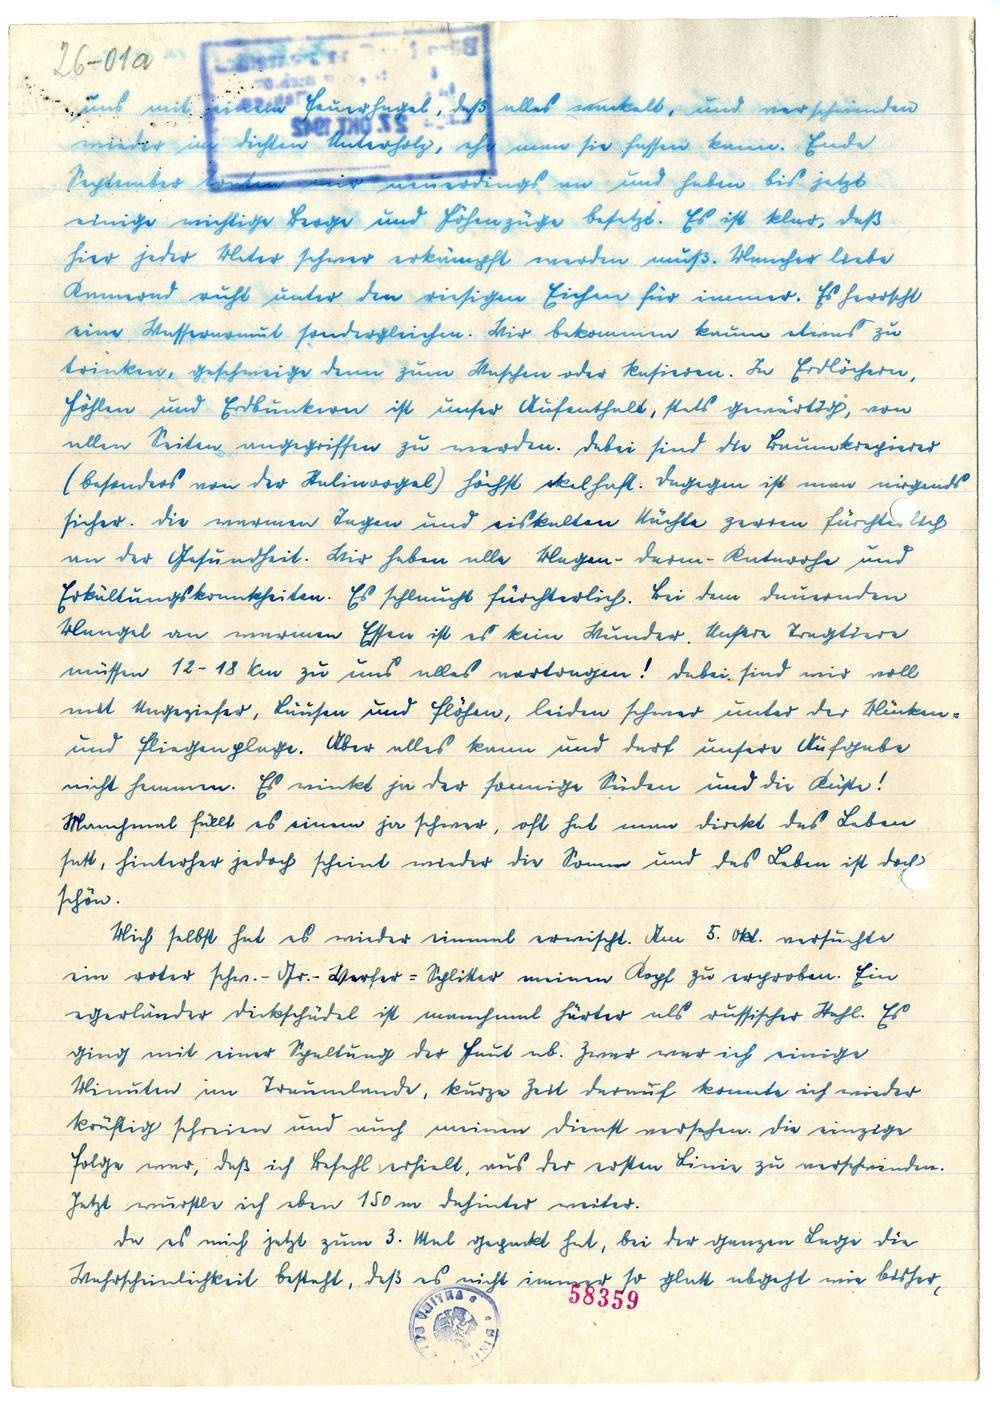 26-01a
uns mit einem Feuerhagel, daß alles wackelt, und verschwinden
wieder im dichten Unterholz, ehe man sie fassen kann. Ende
September traten wir neuerdings an und haben bis jetzt
einige wichtige Berge und Höhenzüge besetzt. Es ist klar, daß
hier jeder Meter schwer erkämpft werden muß. Mancher liebe
Kamerad ruht unter den riesigen Eichen für immer. Es herrscht
eine Wasserarmut sondergleichen. Wir bekommen kaum etwas zu
trinken, geschweige denn zum Waschen oder Rasieren. In Erdlöchern,
Höhlen und Erdbunkern ist unser Aufenthalt, stets gewärtig, von
allen Seiten angegriffen zu werden. Dabei sind die Baumkrepierer
(besonders von der Stalinorgel) höchst ekelhaft. Dagegen ist man nirgends
sicher. Die warmen Tagen und eiskalten Nächte zerren fürchterlich
an der Gesundheit. Wir haben alle Magen-Darm-Katarrhe und
Erkältungskrankheiten. Es schlaucht fürchterlich. Bei dem dauernden
Mangel an warmen Essen ist es kein Wunder. Unsere Tragtiere
müssen 12-18 km zu uns alles vortragen! Dabei sind wir voll
mit Ungeziefer, Läusen und Flöhen, leiden schwer unter der Mücken=
und Fliegenplage. Aber alles kann und darf unsere Aufgabe
nicht hemmen. Es winkt ja der sonnige Süden und die Küste!
Manchmal fällt es einem ja schwer, oft hat man direkt das Leben
satt, hinterher jedoch scheint wieder die Sonne und das Leben ist doch
schön.
Mich selbst hat es wieder einmal erwischt. Am 5. Okt. versuchte
ein roter schw.-Gr.-Werfer=Splitter meinen Kopf zu erproben. Ein
egerländer Dickschädel ist manchmal härter als russischer Stahl. Es
ging mit einer Spaltung der Haut ab. Zwar war ich einige
Minuten im Traumlande, kurze Zeit darauf konnte ich wieder
kräftig schreien und auch meinen Dienst versehen. Die einzige
Folge war, daß ich Befehl erhielt, aus der ersten Linie zu verschwinden.
Jetzt wurstle ich eben 150 m dahinter weiter.
Da es mich jetzt zum 3. Mal gepackt hat, bei der ganzen Lage die
Wahrscheinlichkeit besteht, daß es nicht immer so glatt abgeht wie bisher,
58359